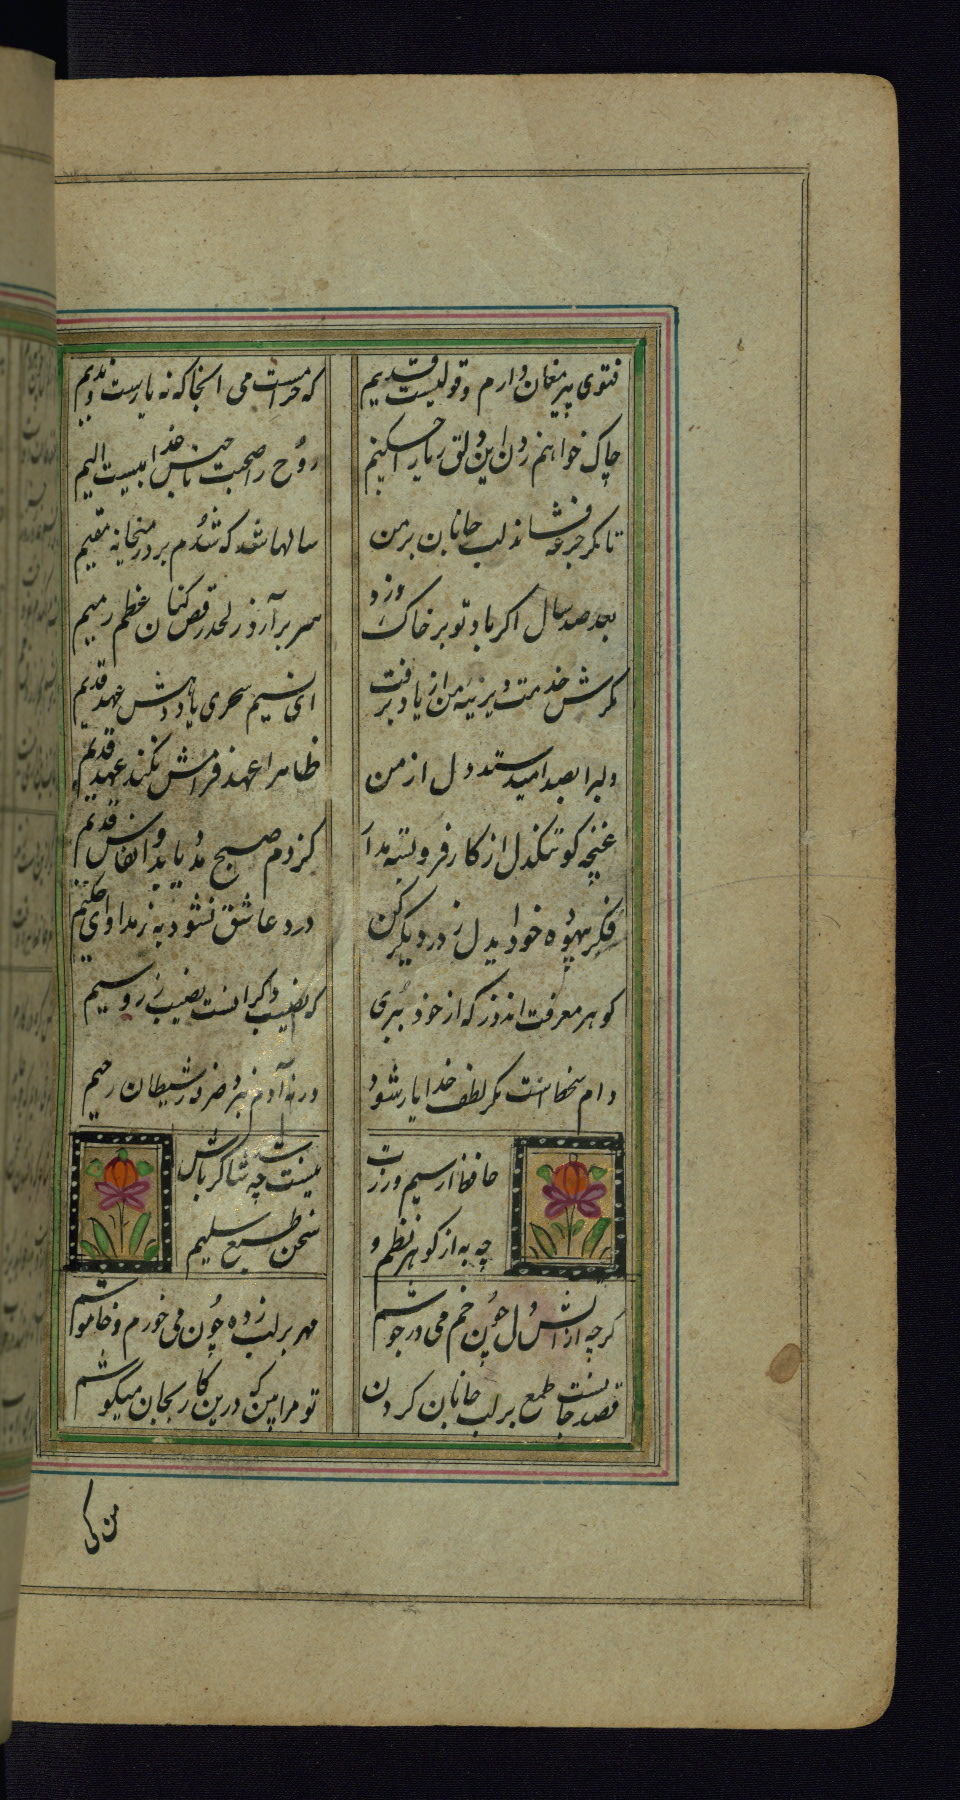 فتوی پیر مغان دارم و قولیست قدیم
که حرامست می انجا که نه یارست و ندیم
چاک خواهم زدن این دلق ریایی چکنم
روح را صحبت ناجنس عذابیست الیم
تا مکر جرعه فشاند لب جانان بر من
سالها شد که شدم بر در میخانه مقیم
بعد صد سال اکر باد تو بر خاک وزد
سر برآرد ز لحد رقص کنان عظم رمیم
مکرش خدمت دیرینه من از یاد برفت
ای نسیم سحری یاد دهش عهد قدیم
دلبرا بصد امید ستد دل از من
ظاهرا عهد فرامش نکند عهد قدیم
غنچه کو تنکدل از کار فروبسته مدار
کز دم صبح مدد یابد و انفاس قدیم
فکر بهبود خود ایدل ز در دیکر کن
درد عاشق نشود به ز مداوای حکیم
کوهر معرفت اندوز که از خود ببری
که نصیب دکرانست نصیب زر و سیم
دام سختست مکر لطف خدا یار شود
ورنه آدم نبرد صرفه ز شیطان رجیم
حافظ ار سیم و زرت
نیست چه شد شاکر باش
چه به از کوهر نظم و
سخن طبع سلیم
کرچه از اتش دل چون خم می در جوشم
مهر بر لب زده چون می خورم و خاموشم
قصد جانست طمع بر لب جانان کردن
تو مرا بین که درین کار بجان میکوشم
من کی